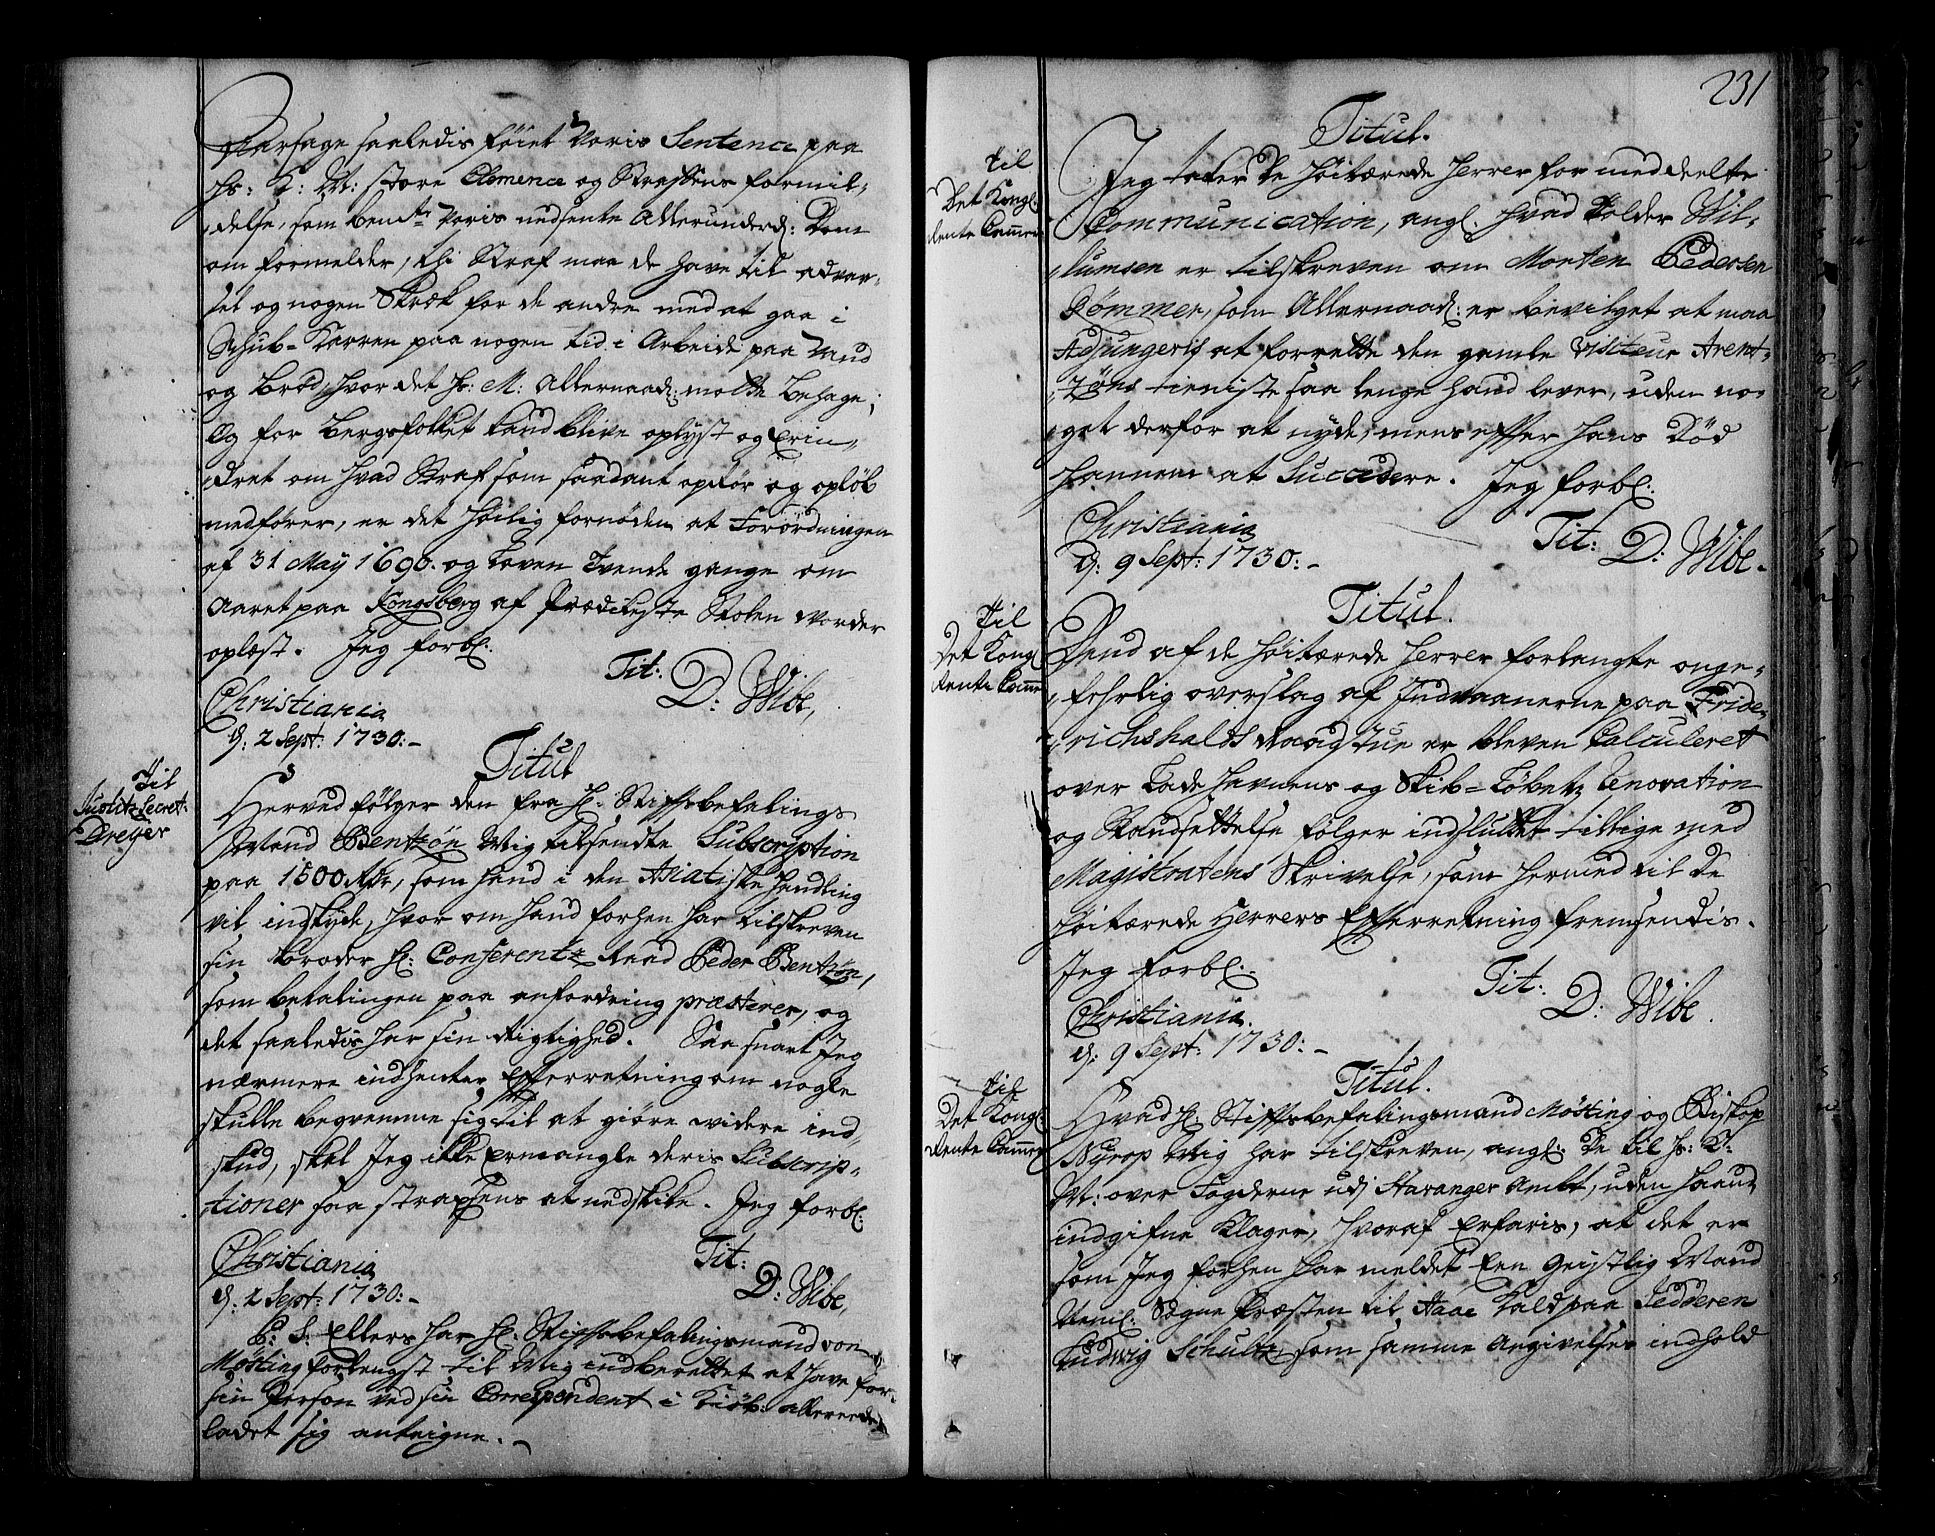 Aarsage saaledis føiet Voris Sentence paa
Hs: K: Mt: store Clemence og Straffens formil-
delse, som bente Voris nedsente Allerunderd: Dom
om formelder, thi Straf maa de have til advar-
sel og nogen Skræk for de andre med at gaa i
Schub-Karren paa nogen tid i Arbeide paa Vand
og Brød, hvor det Hs: M: Allernaad: motte behage,
Og for Bergsfolket kand blive oplyst og erin-
dret om hvad Straf som saadant oprør og opløb
medfører, er det høilig fornøden at Forordningen
af 31 May 1690. og Loven Tvende gange om
Aaret paa Kongsberg af Prædike Stolen vorder
oplæst. Jeg forbl:
Tit:
D: Wibe,
Christiania
d: 2 Sept: 1730:-
Titul
Til
Justitz Secret:
Dreyer
Herved følger den fra H: Stiftsbefalings
Mand Bentzøn Mig tilsendte Subscription
paa 1500 Rdr, som hand i den Asiatiske Handling
vil indskyde, hvor om hand forhen har tilskreven
sin broder H: Conferentz Raad Peder Bentzøn,
som betalingen paa anfordring præsterer, og
det saaledis har sin Rigtighed. Saa snart Jeg
nærmere indhenter Efterretning om nogle
skulle beqvemme sig til at giøre videre ind-
skud, skal Jeg ikke ermangle deris Subscrip-
tioner saa straxens at nedskike. Jeg forbl:
Christiania
d: 2 Sept: 1730:-
Tit:
D: Wibe,
P: S: Ellers har H: Stiftsbefalingsmand von
Møsting forlengst til Mig indberettet at have for
sin Person ved sin Correspondent i Kiøb: allereede
ladet sig anteigne.
231
Titul.
Til
Det Kongl:
Rente Cammer
Jeg takker De høitærede Herrer for meddeelte
Communication, angl. hvad Tolder Wil-
lumsen er tilskreven om Morten Pedersen
Rømmer, som Allernaad: er bevilget at maa
Adjungeris at forrette den gamle Visiteur Arent-
zøns tieniste saa lenge hand lever, uden no-
get derfor at nyde, mens efter hans Død
hannem at Succedere. Jeg forbl:
Christiania
d: 9 Sept: 1730:-
Tit: D: Wibe.
Titul.
Til
Det Kongl
Rente Camer
Dend af de høitærede Herrer forlangte onge-
fehrlig overslag af Indvaanerne paa Fride-
richshalds Raadstue er bleven Calculeret
over Lade havnens og Skib-Løbets Renovation
og Standsettelse følger indsluttet tillige med
Magistratens Skrivelse, som hermed til De
høitærede Herrers Efterretning fremsendis.
Jeg forbl:
Tit:
D: Wibe.
Christiania.
d: 9 Sept: 1730:-
Titul.
Til
Det Kongl:
Rente Cammer
Hvad H: Stiftsbefalingsmand Møsting og Biskop
Nyrop Mig har tilskreven, angl: De til Hs: K:
Mt: over Fogderne udj Stavanger Amt, uden haand
indgifne Klager, hvoraf erfaris, at det er
som Jeg forhen har meldet Een Geistlig Mand
Neml: Sogne Præsten til Haae Kald paa Jedderen
Ludwig Schultz, som samme Angivelses indhold